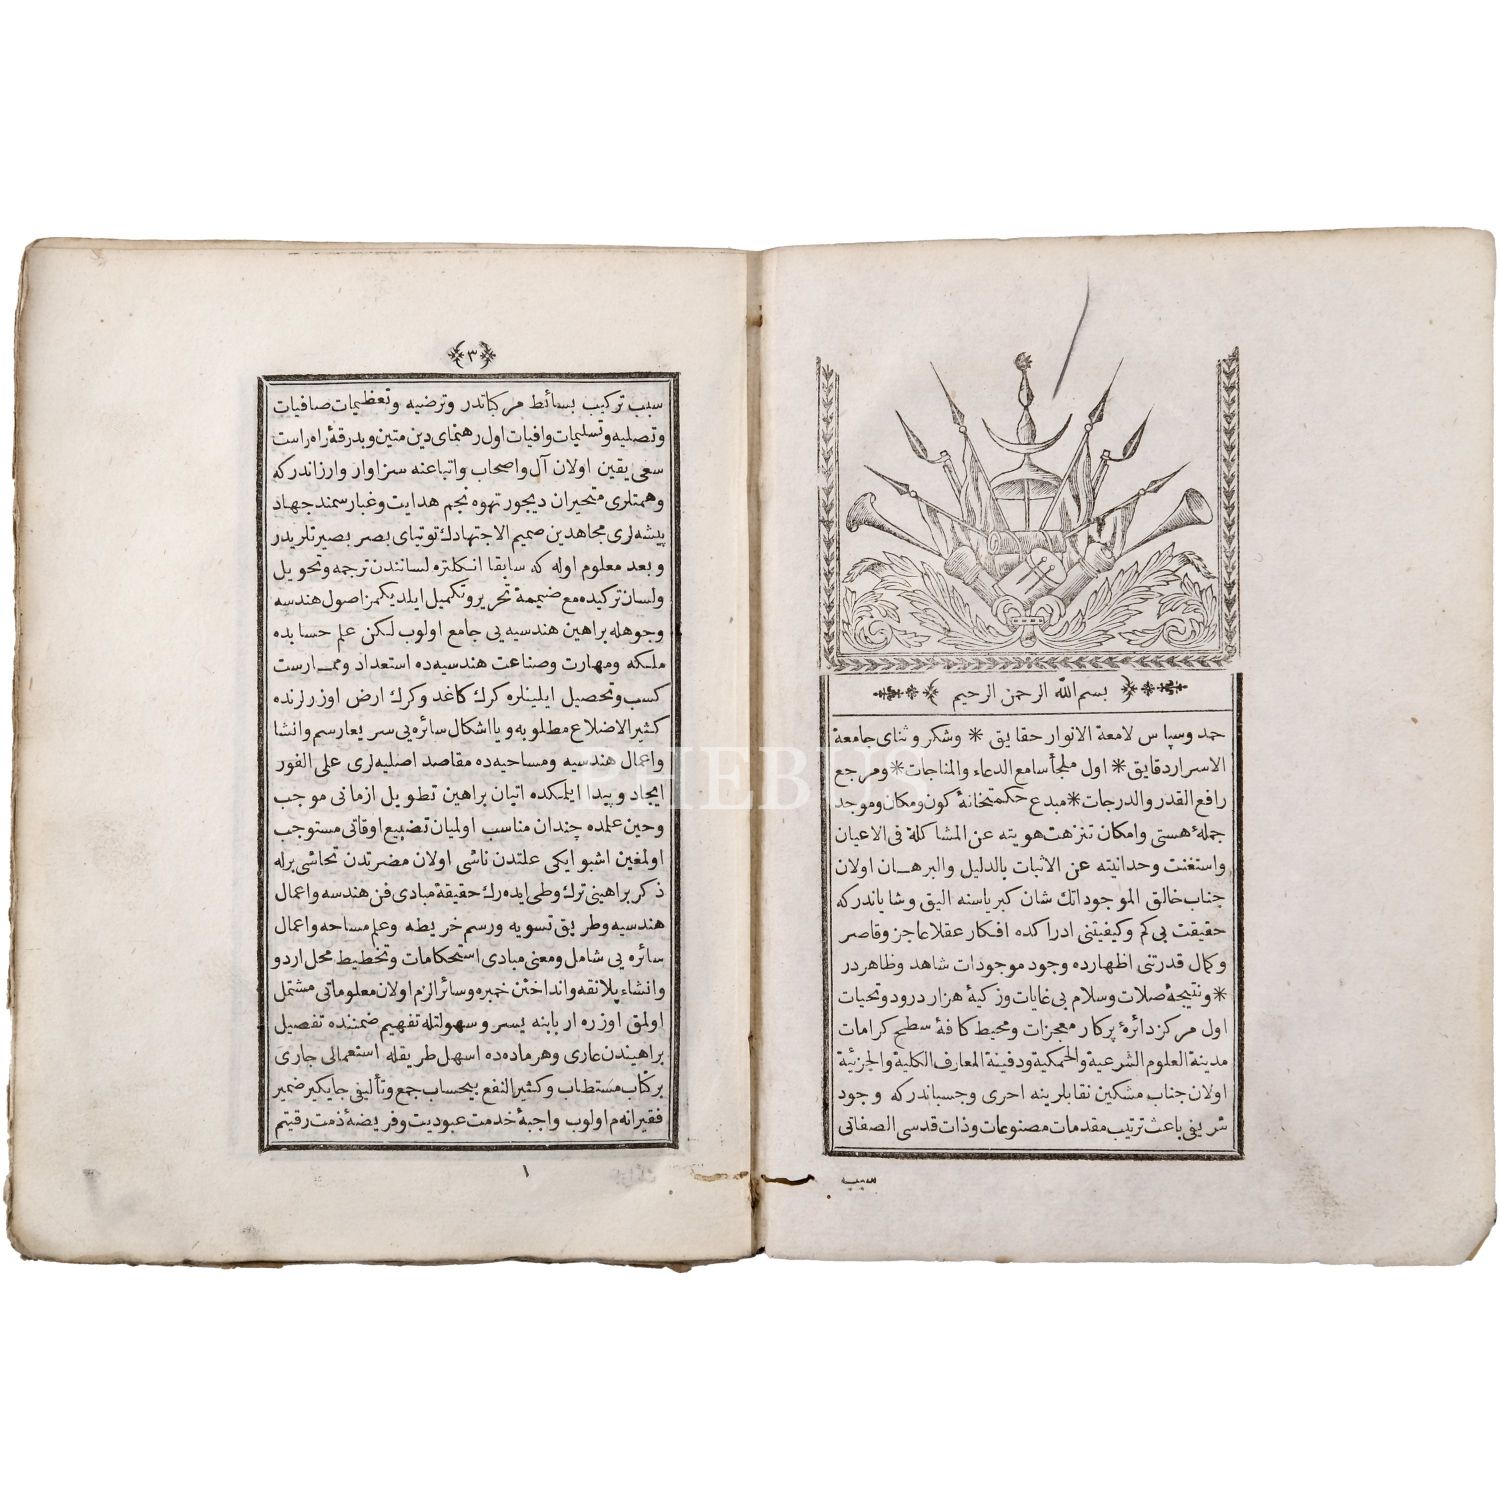 بسم الله الرحمن الرحيم
حمد وسپاس لامعة الانوار حقايق * وشكر وثناى جامعة
الاسرار دقايق * اول ملجأ سامع الدعاء والمناجات * ومرجع
رافع القدر والدرجات * مبدع حكمتخانهٔ كون ومكان وموجد
جملهٔ هستى وامكان تنزهت هويته عن المشاكلة فى الاعيان
واستغنت وحدانيته عن الاثبات بالدليل والبرهان اولان
جناب خالق الموجوداتك شان كبرياسنه اليق وشاياندركه
حقيقت بى كم وكيفيتنى ادراكده افكار عقلا عاجز وقاصر
وكمال قدرتنى اظهارده وجود موجودات شاهد وظاهردر
* ونتيجهٔ صلات وسلام بى غايات وزكيهٔ هزار درود وتحيات
اول مركز دائرهٔ پركار معجزات ومحيط كافهٔ سطح كرامات
مدينة العلوم الشرعية والحكمية ودفينة المعارف الكلية والجزئية
اولان جناب مشكين نقابلرينه احرى وجسباندركه وجود
شريفى باعث ترتيب مقدمات مصنوعات وذات قدسى الصفاتى
سبب
﴿٣﴾
سبب تركيب بسائط مركباتدر وترضيه وتعظيمات صافيات
وتصليه وتسليمات وافيات اول رهنماى دين متين وبدرقهٔ راه راست
سعى يقين اولان آل واصحاب واتباعنه سزاوار وارزاندركه
وهمتلرى متحيران ديجور تهوه نجم هدايت وغبار سمند جهاد
پيشه لرى مجاهدين صميم الاجتهادك توتياى بصر بصيرتلريدر
وبعد معلوم اوله كه سابقا انكلتره لسانندن ترجمه وتحويل
ولسان تركيده مع ضميمة تحرير وتكميل ايلديكمز اصول هندسه
وجوهله براهين هندسيه يى جامع اولوب لكن علم حسابده
ملكه ومهارت وصناعت هندسيه ده استعداد وممارست
كسب وتحصيل ايلينلره كرك كاغد وكرك ارض اوزرلرنده
كثير الاضلاع مطلوبه ويا اشكال سائره يى سريعا رسم وانشا
واعمال هندسيه ومساحيه ده مقاصد اصليه لرى على الفور
ايجاد وپيدا ايلمكده اتيان براهين تطويل ازمانى موجب
وحين عملده چندان مناسب اولميان تضييع اوقاتى مستوجب
اولمغين اشبو ايكى علتدن ناشى اولان مضرتدن تحاشى برله
ذكر براهينى ترك وطى ايده رك حقيقة مبادى فن هندسه واعمال
هندسيه وطريق تسويه ورسم خريطه وعلم مساحه واعمال
سائره يى شامل ومعنى مبادى استحكامات وتخطيط محل اردو
وانشاء پلانقه وانداختن خمبره وسائر الزم اولان معلوماتى مشتمل
اولمق اوزره اربابنه يسر وسهولتله تفهيم ضمننده تفصيل
براهيندن عارى وهر ماده ده اسهل طريقله استعمالى جارى
بر كتاب مستطاب وكثير النفع بيحساب جمع وتأليفى جايكير ضمير
فقيرانه م اولوب واجبهٔ خدمت عبوديت وفريضهٔ ذمت رقيتم
١
PHEBUS